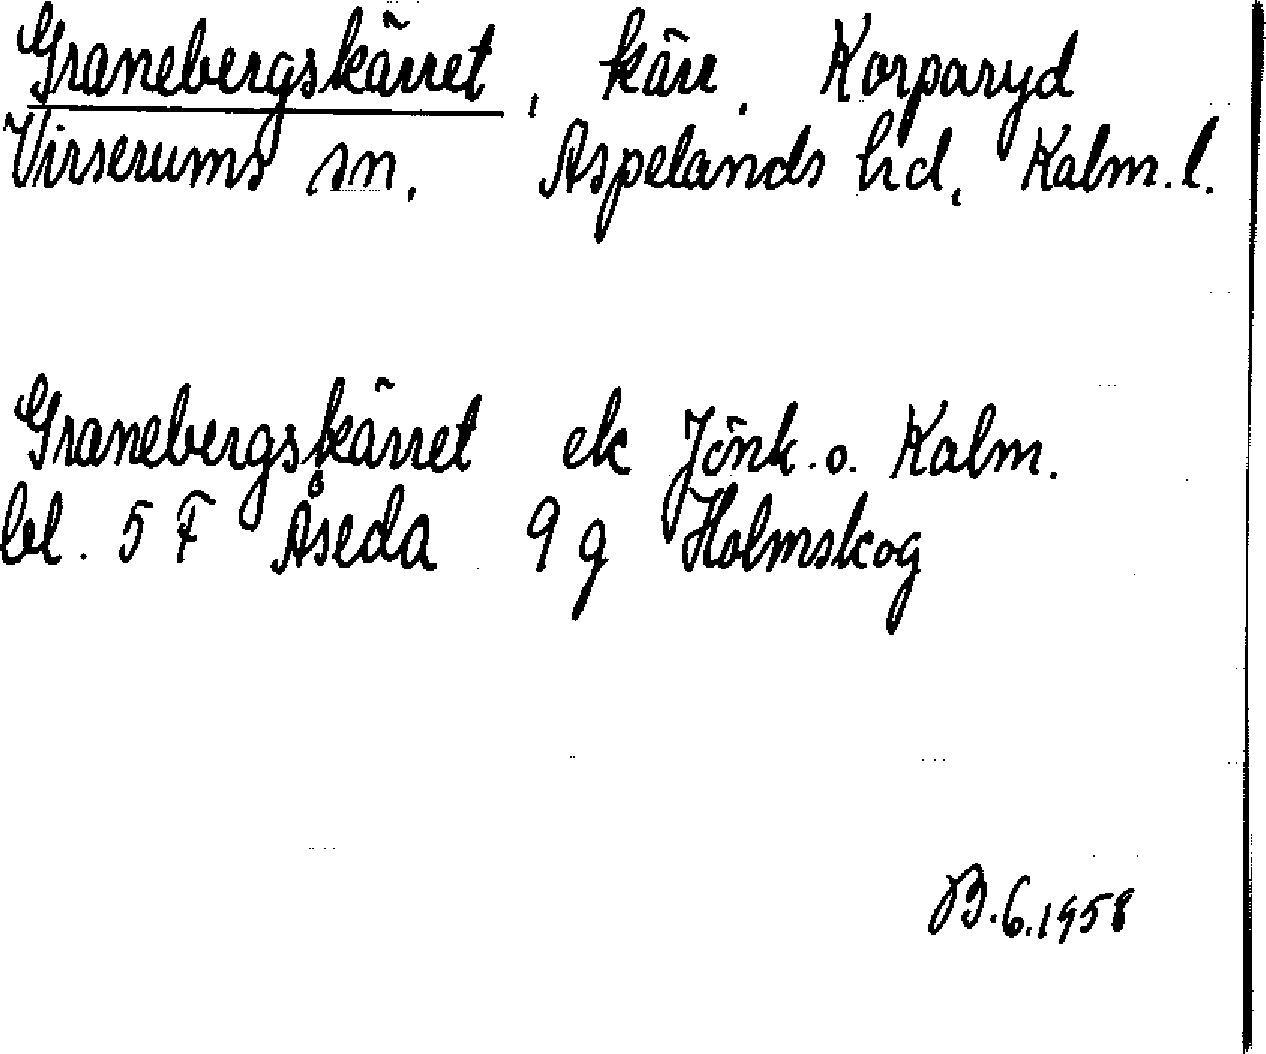 Granebergskärret, kärr. Korparyd
Virserums sn. Aspelands hd, Kalm. l.
Granebergskärret ek Jönk. o. Kalm.
bl. 5 F Åseda 9 g Holmskog
B.6.1958